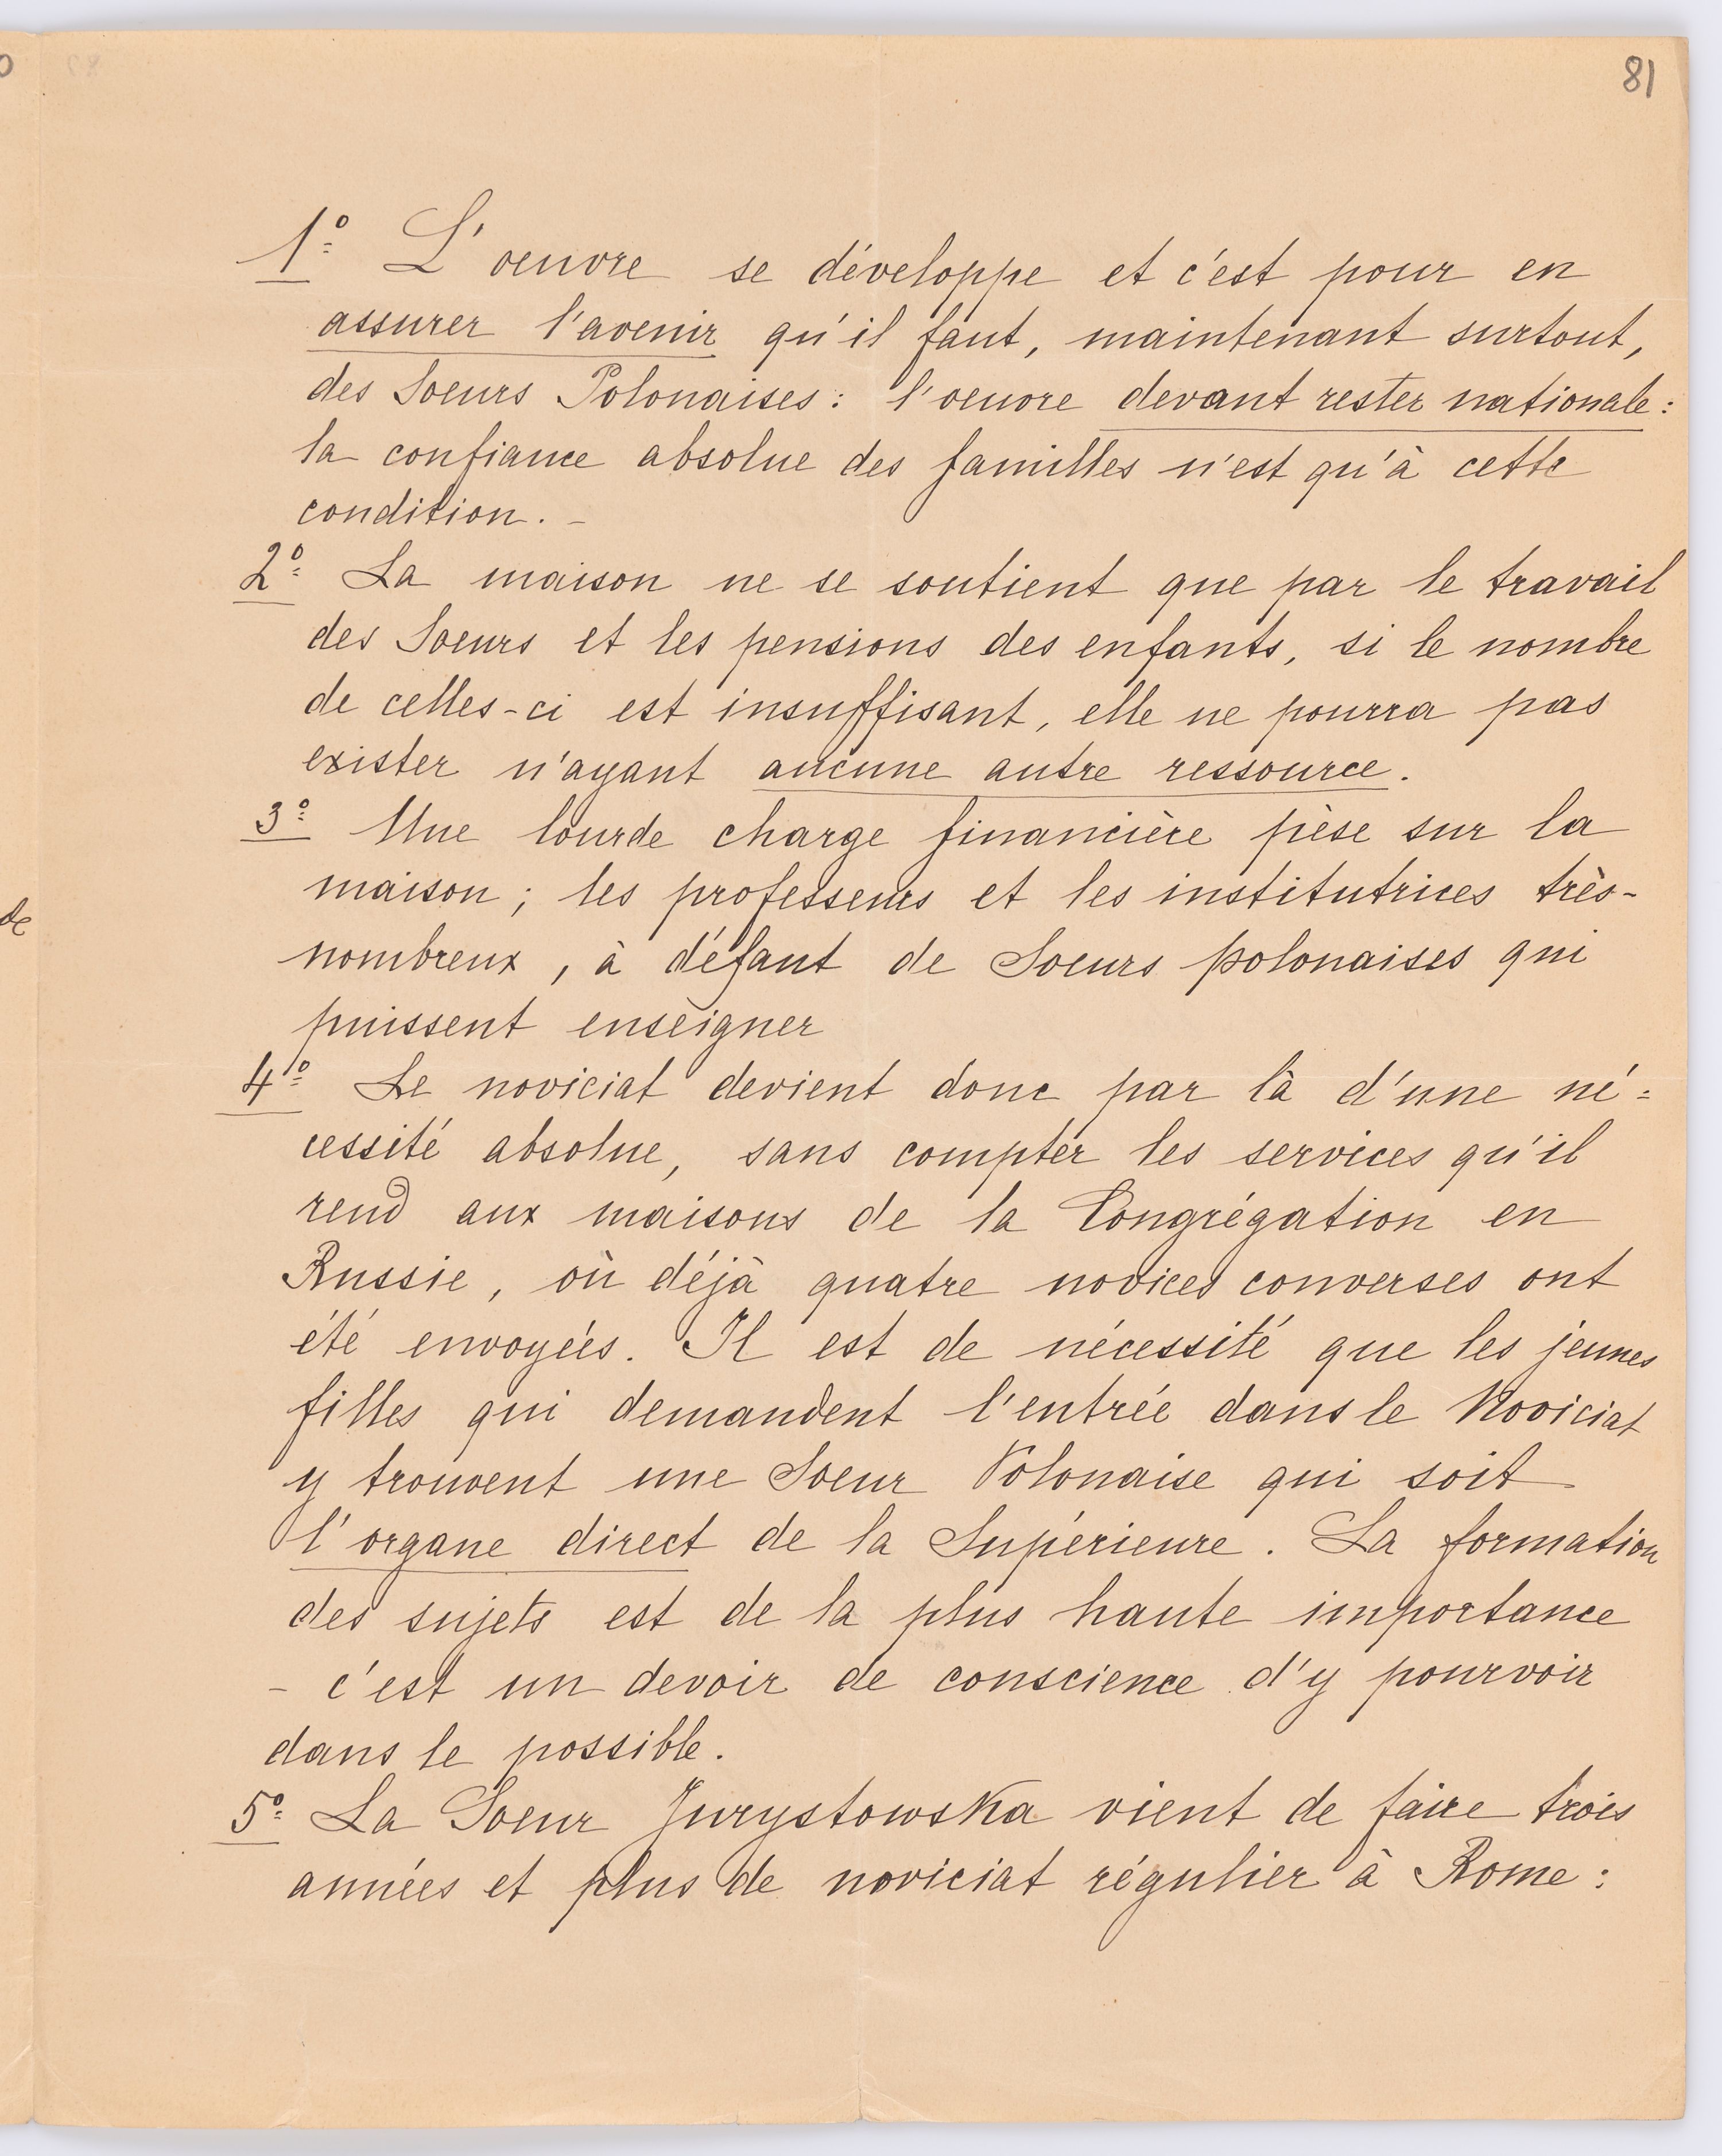 81
1º L'oeuvre se développe et c'est pour en
assurer l'avenir qu'il faut, maintenant surtout,
des Soeurs Polonaises: l'oeuvre devant rester nationale:
la confiance absolue des familles n'est qu'à cette
condition. -
2º La maison ne se soutient que par le travail
des Soeurs et les pensions des enfants, si le nombre
de celles-ci est insuffisant, elle ne pourra pas
exister n'ayant aucune autre ressource.
3º Une lourde charge financière pèse sur la
maison; les professeurs et les institutrices très-
nombreux, à défaut de Soeurs polonaises qui
puissent enseigner
4º Le noviciat devient donc par là d'une né=
cessité absolue, sans compter les services qu'il
rend aux maisons de la Congrégation en
Russie, où déjà quatre novices converses ont
été envoyées. Il est de nécessité que les jeunes
filles qui demandent l'entrée dans le Noviciat
y trouvent une Soeur Polonaise qui soit
l'organe direct de la Supérieure. La formation
des sujets est de la plus haute importance
- c'est un devoir de conscience d'y pourvoir
dans le possible.
5º La Soeur Jurystowska vient de faire trois
années et plus de noviciat régulier à Rome: